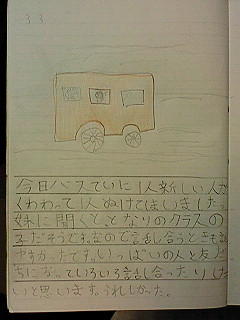 33
今日バスていに1人新しい人が
くわわって1人ぬけてしまいました。
妹に聞くと、となりのクラスの
子だそうです。なので話し合うときもし
やすかったです。いっぱいの人と友だ
ちになっていろいろ話し合ったりした
いと思います。うれしかった。